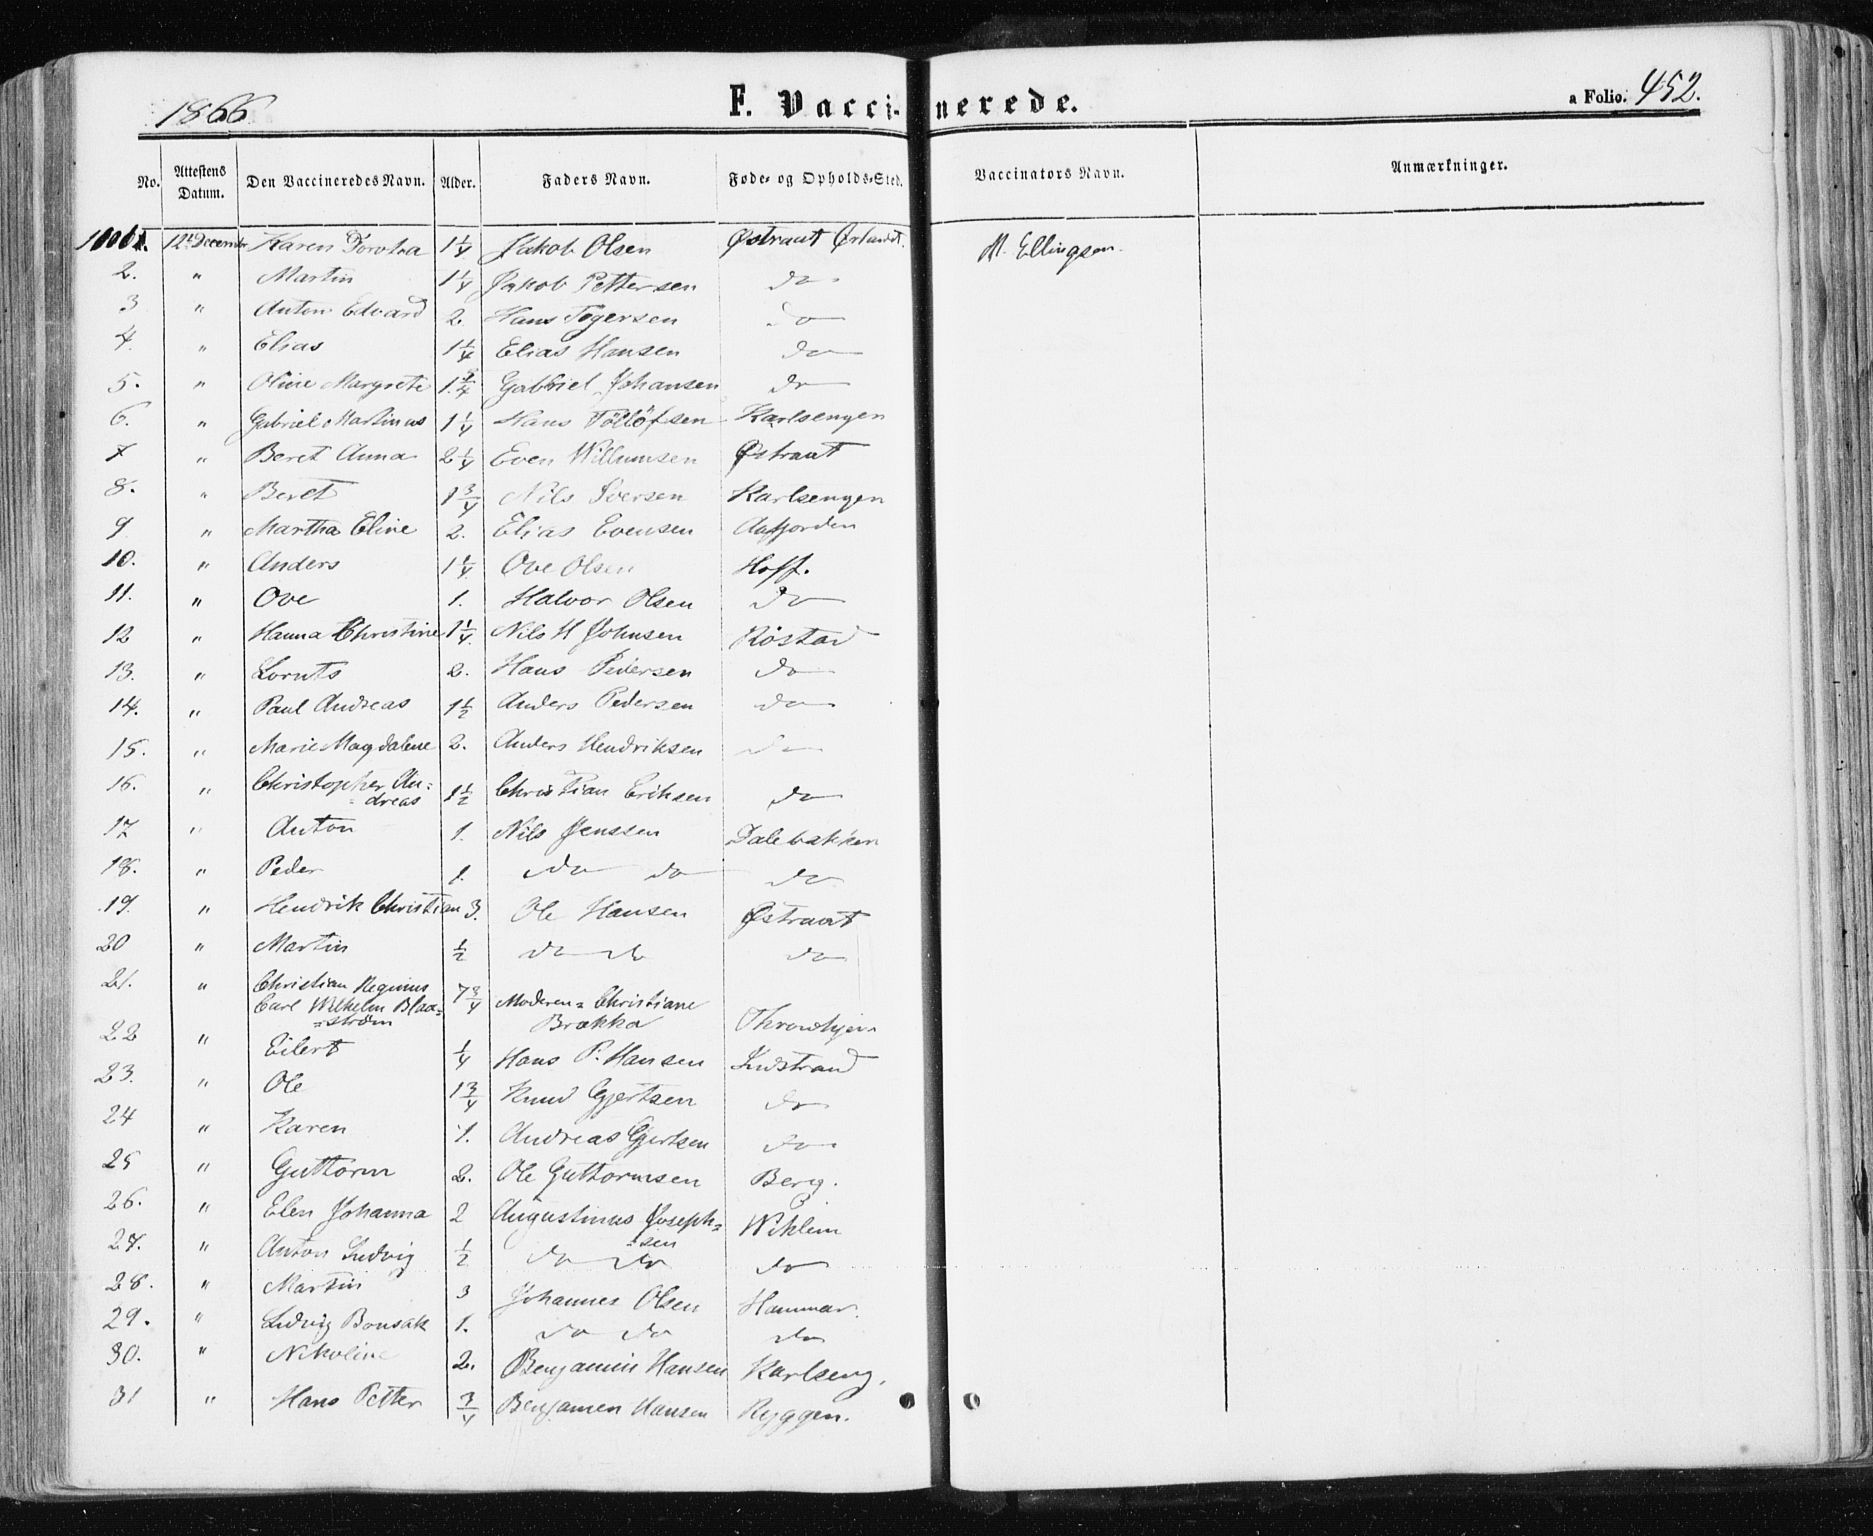 1866. F. Vaccinerede. a Folio. 452.
No. Attestens Datum. Den Vaccineredes Navn. Alder. Faders Navn. Føde- og Opholds-Sted. Vaccinators Navn. Anmærkninger.
12te December Karen Dorothea 1 1/4 Jakob Olsen Østraat Ørlandt. M. Ellingsen.
2. " Martin 1 1/4 Jakob Pettersen do
3 " Anton Edvard 2. Hans Togersen do
4. " Elias 1 1/4 Elias Hansen do
5. " Oline Margrete Gabriel Johansen do
6. " Gabriel Martinus 1 1/4 Hans Töllöfsen Karlsengen
7 " Beret Anna 2 1/4 Even Willumsen Østraat
8. " Beret 1 3/4 Nils Iversen Karlsengen
9 " Martha Eline 2. Elias Evensen Aafjorden
10. " Anders 1 1/4 Ove Olsen Hoff.
11. " Ove 1. Halvor Olsen do
12 " Hanna Christine 1 1/4 Nils H Johnsen Röstad
13. " Lornts 2. Hans Pedersen do
14. " Paul Andreas 1 1/2 Anders Pedersen do
15. " Marie Magdalene 2. Anders Hendriksen do
16. " Christopher An=
=dreas 1 1/2 Christian Eriksen do
17 " Anton 1. Nils Jenssen Dalebakken
18. " Peder 1. do do do
19. " Hendrik Christian 3. Ole Hansen Østraat
20 " Martin 1/2 do do do
21. " Christian Reginus
Carl Wilhelm Blaa= 7 3/4 Moderen = Christiane
=ström Brækka Throndhjem
22 " Eilert 1/4 Hans P. Hansen Indstrand
23. " Ole 1 3/4 Knud Gjertsen do
24 " Karen 1. Andreas Gjertsen do
25 " Guttorm 2. Ole Guttormsen Berg.
26. " Elen Johanna 2 Augustinus Joseph=
=sen Wiklem
27. " Anton Ludvig 1/2 do do do
28. " Martin 3 Johannes Olsen Hammar.
29. " Ludvig Bonsak 1. do do do
30. " Nikoline 2. Benjamin Hansen Karlseng.
31 " Hans Petter 3/4 Benjamen Hansen Ryggen.